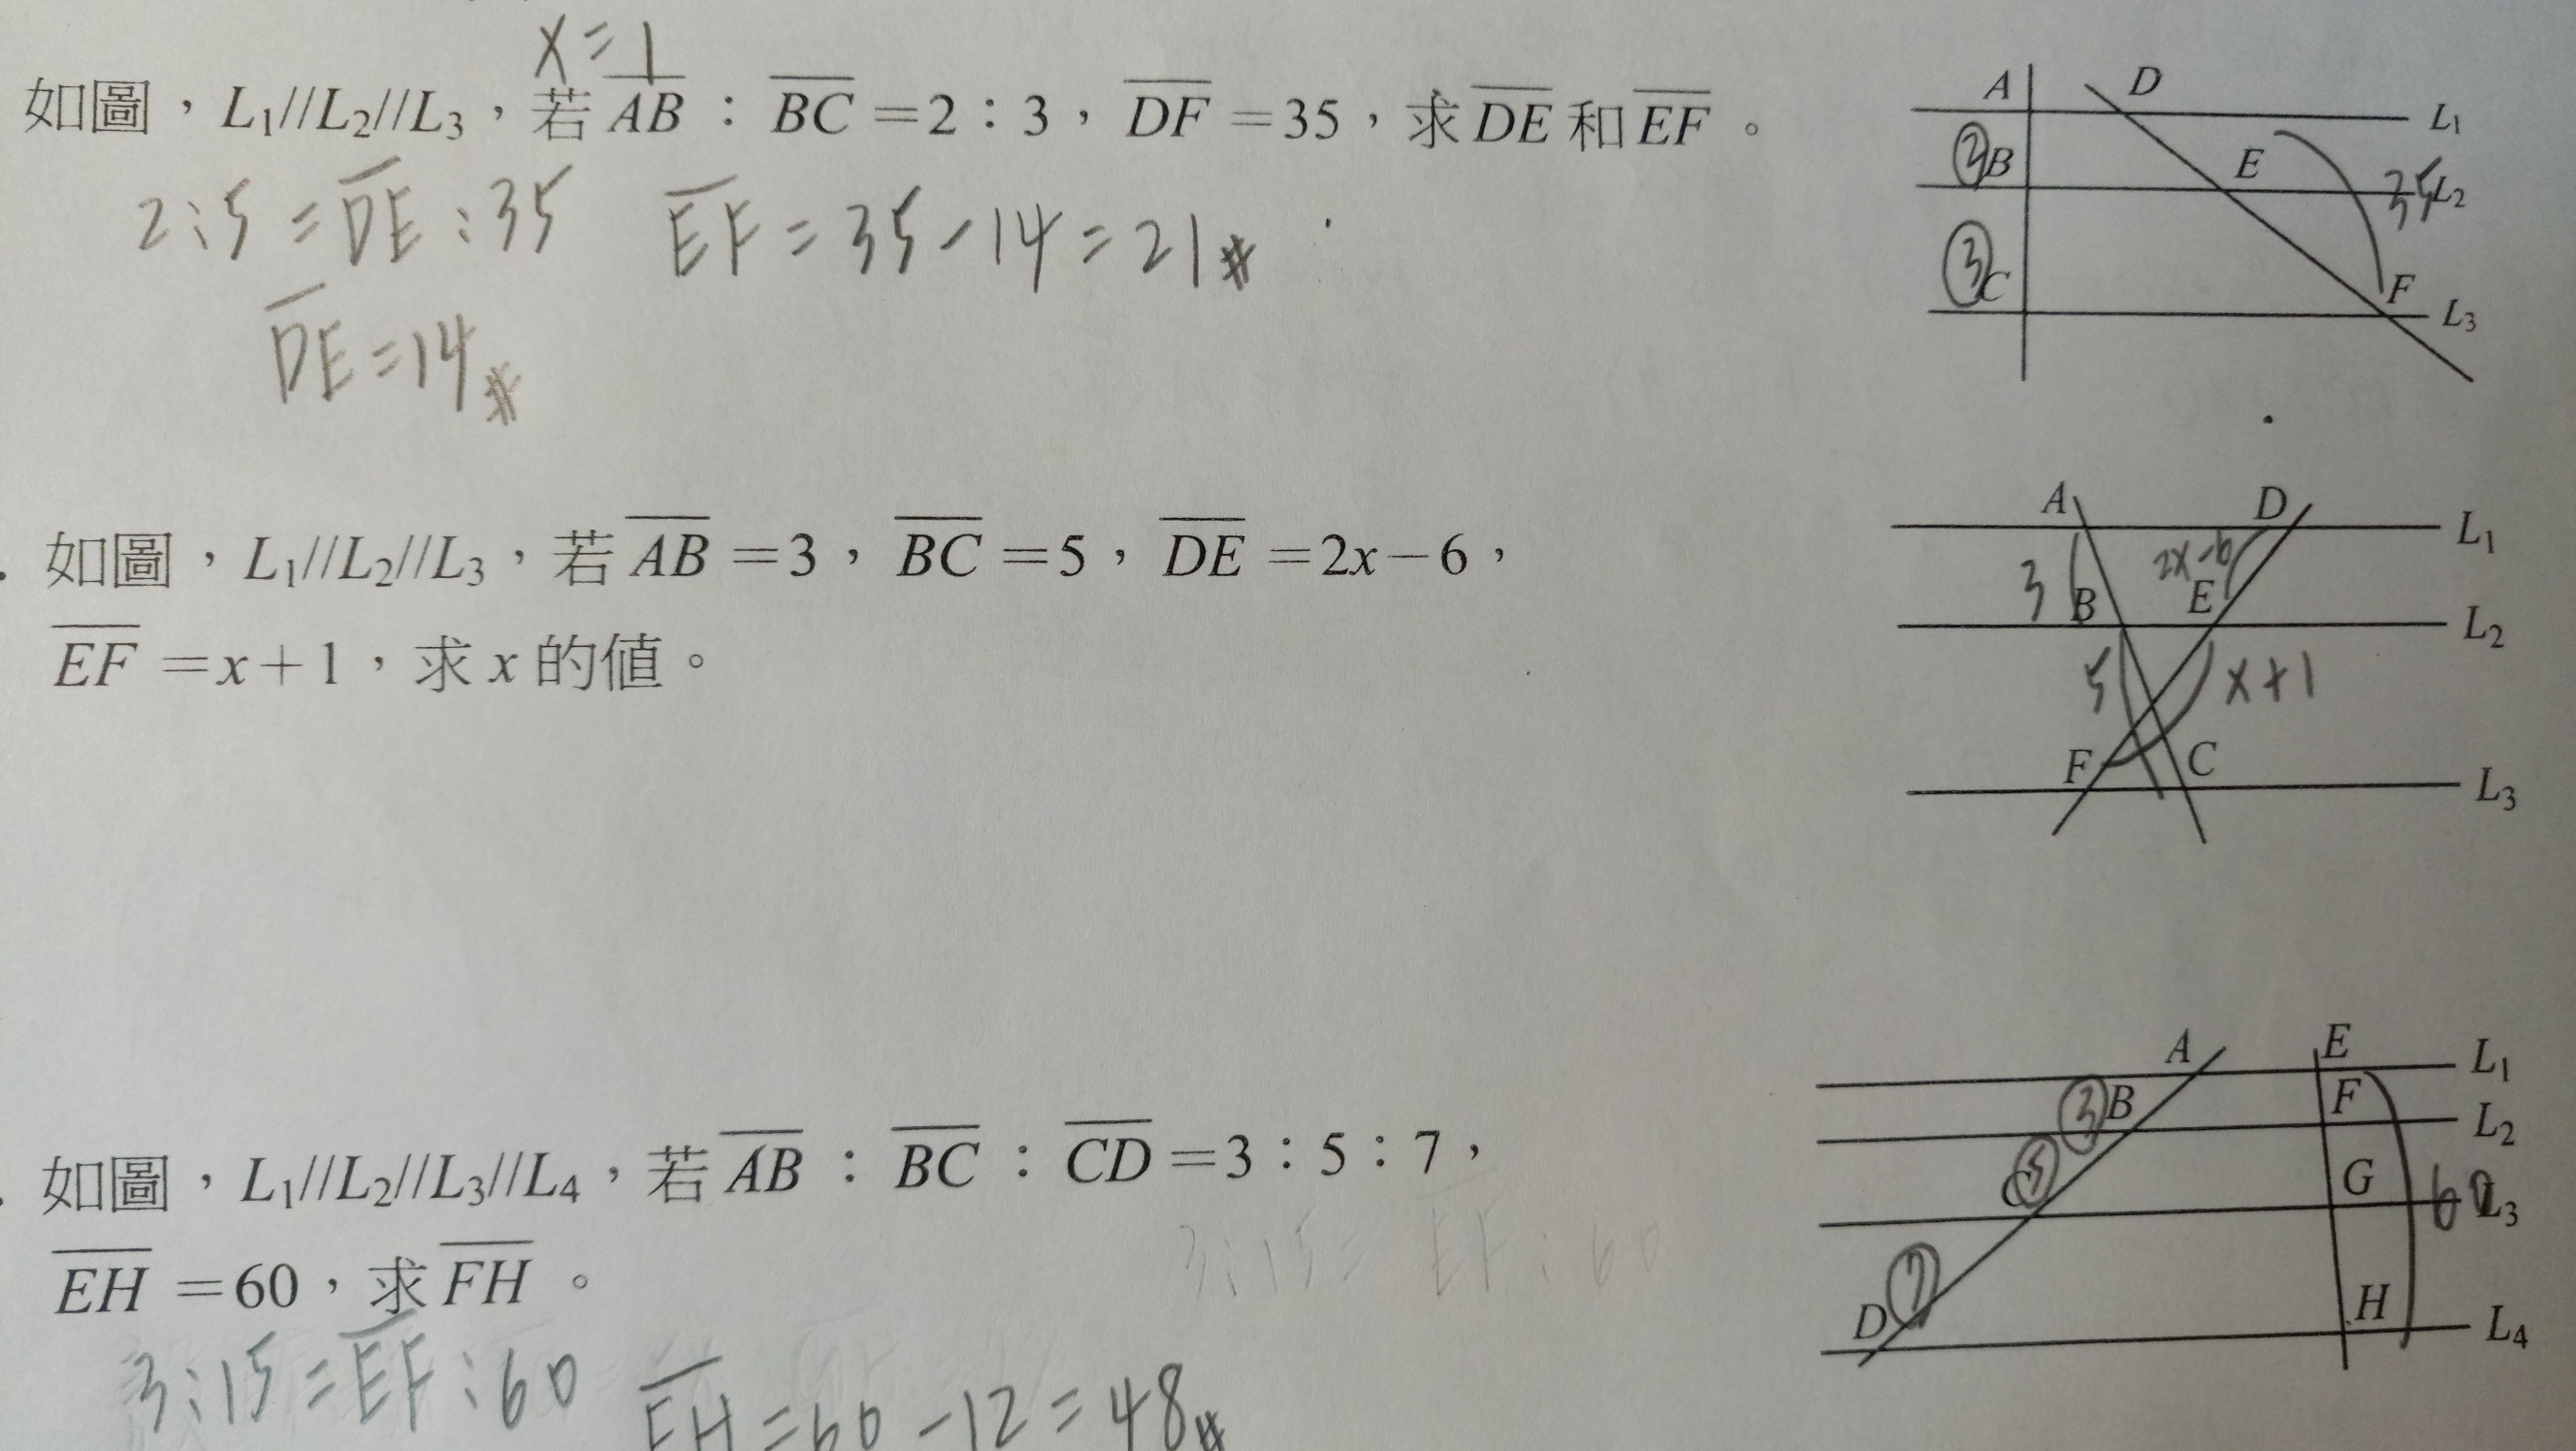 x=1
如圖，L1//L2//L3，若AB：BC=2：3，DF=35，求DE和EF。
2:5=DE:35 EF=35-14=21#
DE=14#
A D L1
② B E 35 L2
③ C F L3
如圖，L1//L2//L3，若AB=3，BC=5，DE=2x-6，
EF=x+1，求x的值。
A D L1
3 B 2x-6 E L2
5 x+1
F C L3
如圖，L1//L2//L3//L4，若AB：BC：CD=3：5：7，
EH=60，求FH。
3:15=EF:60
3:15=EF:60 FH=60-12=48#
A E L1
③ B F L2
C ⑤ G 60 L3
D ⑦ H L4